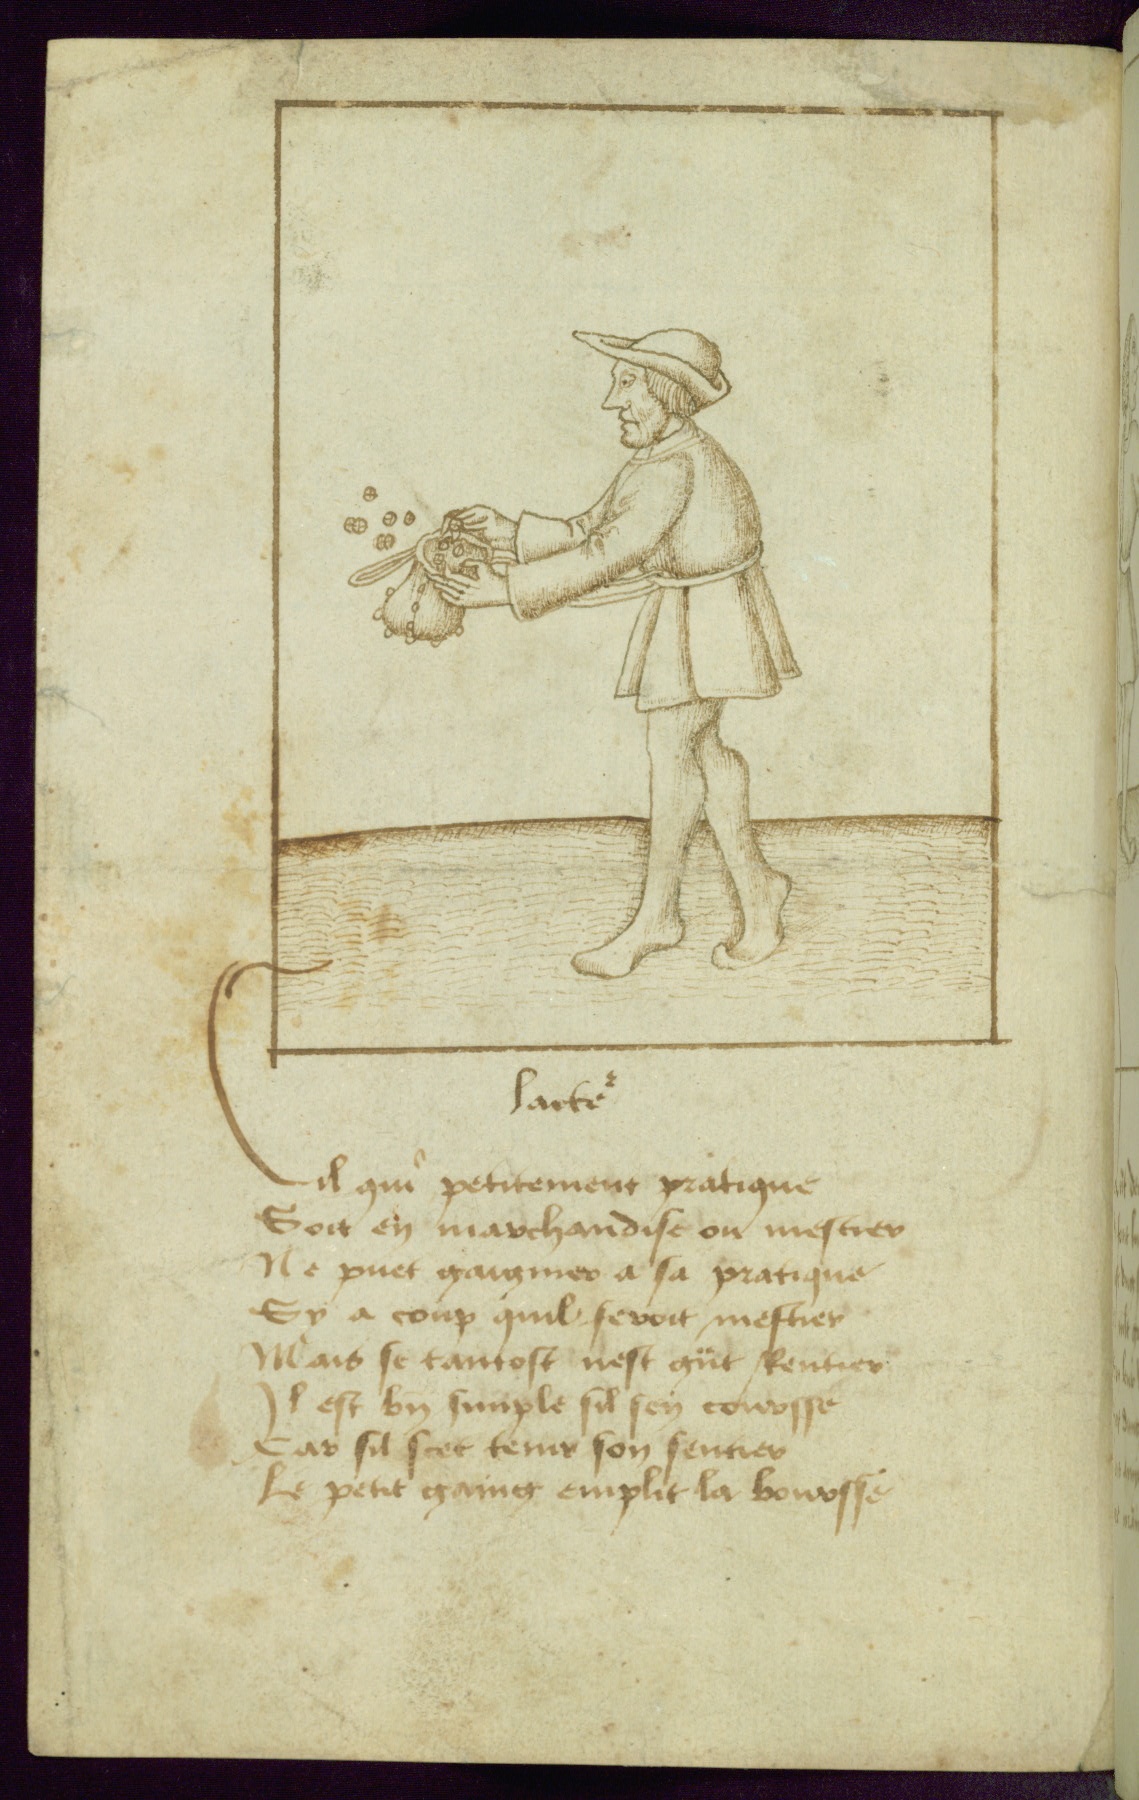 lacte²
Cil qui petitement pratique
Soit en marchandise ou mestier
Ne puet gaigner a sa pratique
Sy a coup quil seroit mestier
Mais se tantost nest gñt Rentier
Il est bn simple sil sen courssse
Car sil scet tenir son sentier
Le petit gaing emplit la boursse